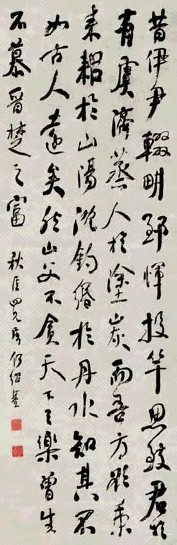 昔伊尹輟畊郅惲投竿思致君於
有虞濟蒸人於塗炭而吾方欲秉
耒耜於山陽沈鈎緡於丹水知其不
如古人遠矣然山父不貪天下之樂曾生
不慕晋楚之富
秋臣四兄屬何紹基